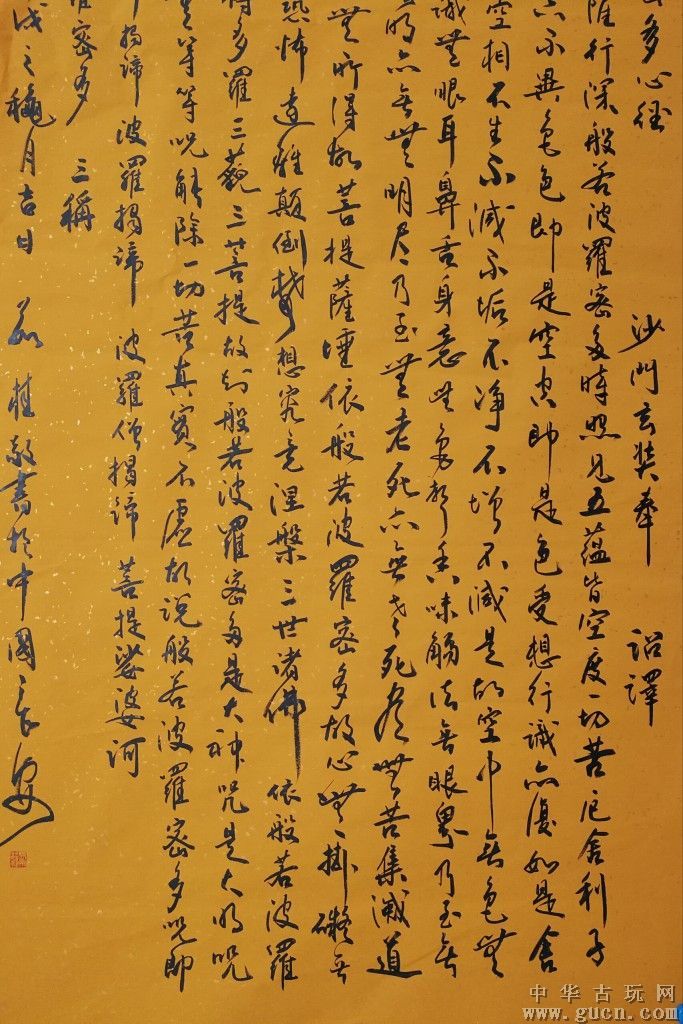 多心經 沙門玄奘奉 詔譯
薩行深般若波羅密多時照見五蘊皆空度一切苦厄舍利子
不異色色即是空空即是色受想行識亦復如是舍
空相不生不滅不垢不净不增不減是故空中無色無
識無眼耳鼻舌身意無色聲香味觸法無眼界乃至無
明亦無無明盡乃至無老死亦無老死盡無苦集滅道
無所得故菩提薩埵依般若波羅密多故心無掛礙無
恐怖遠離顛倒夢想究竟涅槃三世諸佛依般若波羅
多羅三藐三菩提故知般若波羅密多是大神咒是大明咒
等等咒能除一切苦真實不虛故說般若波羅密多咒即
揭諦 波羅揭諦 波羅僧揭諦 菩提娑婆訶
密多 三稱
戌之穐月吉日 茹桂敬書於中國長安
中华古玩网
www.gucn.com